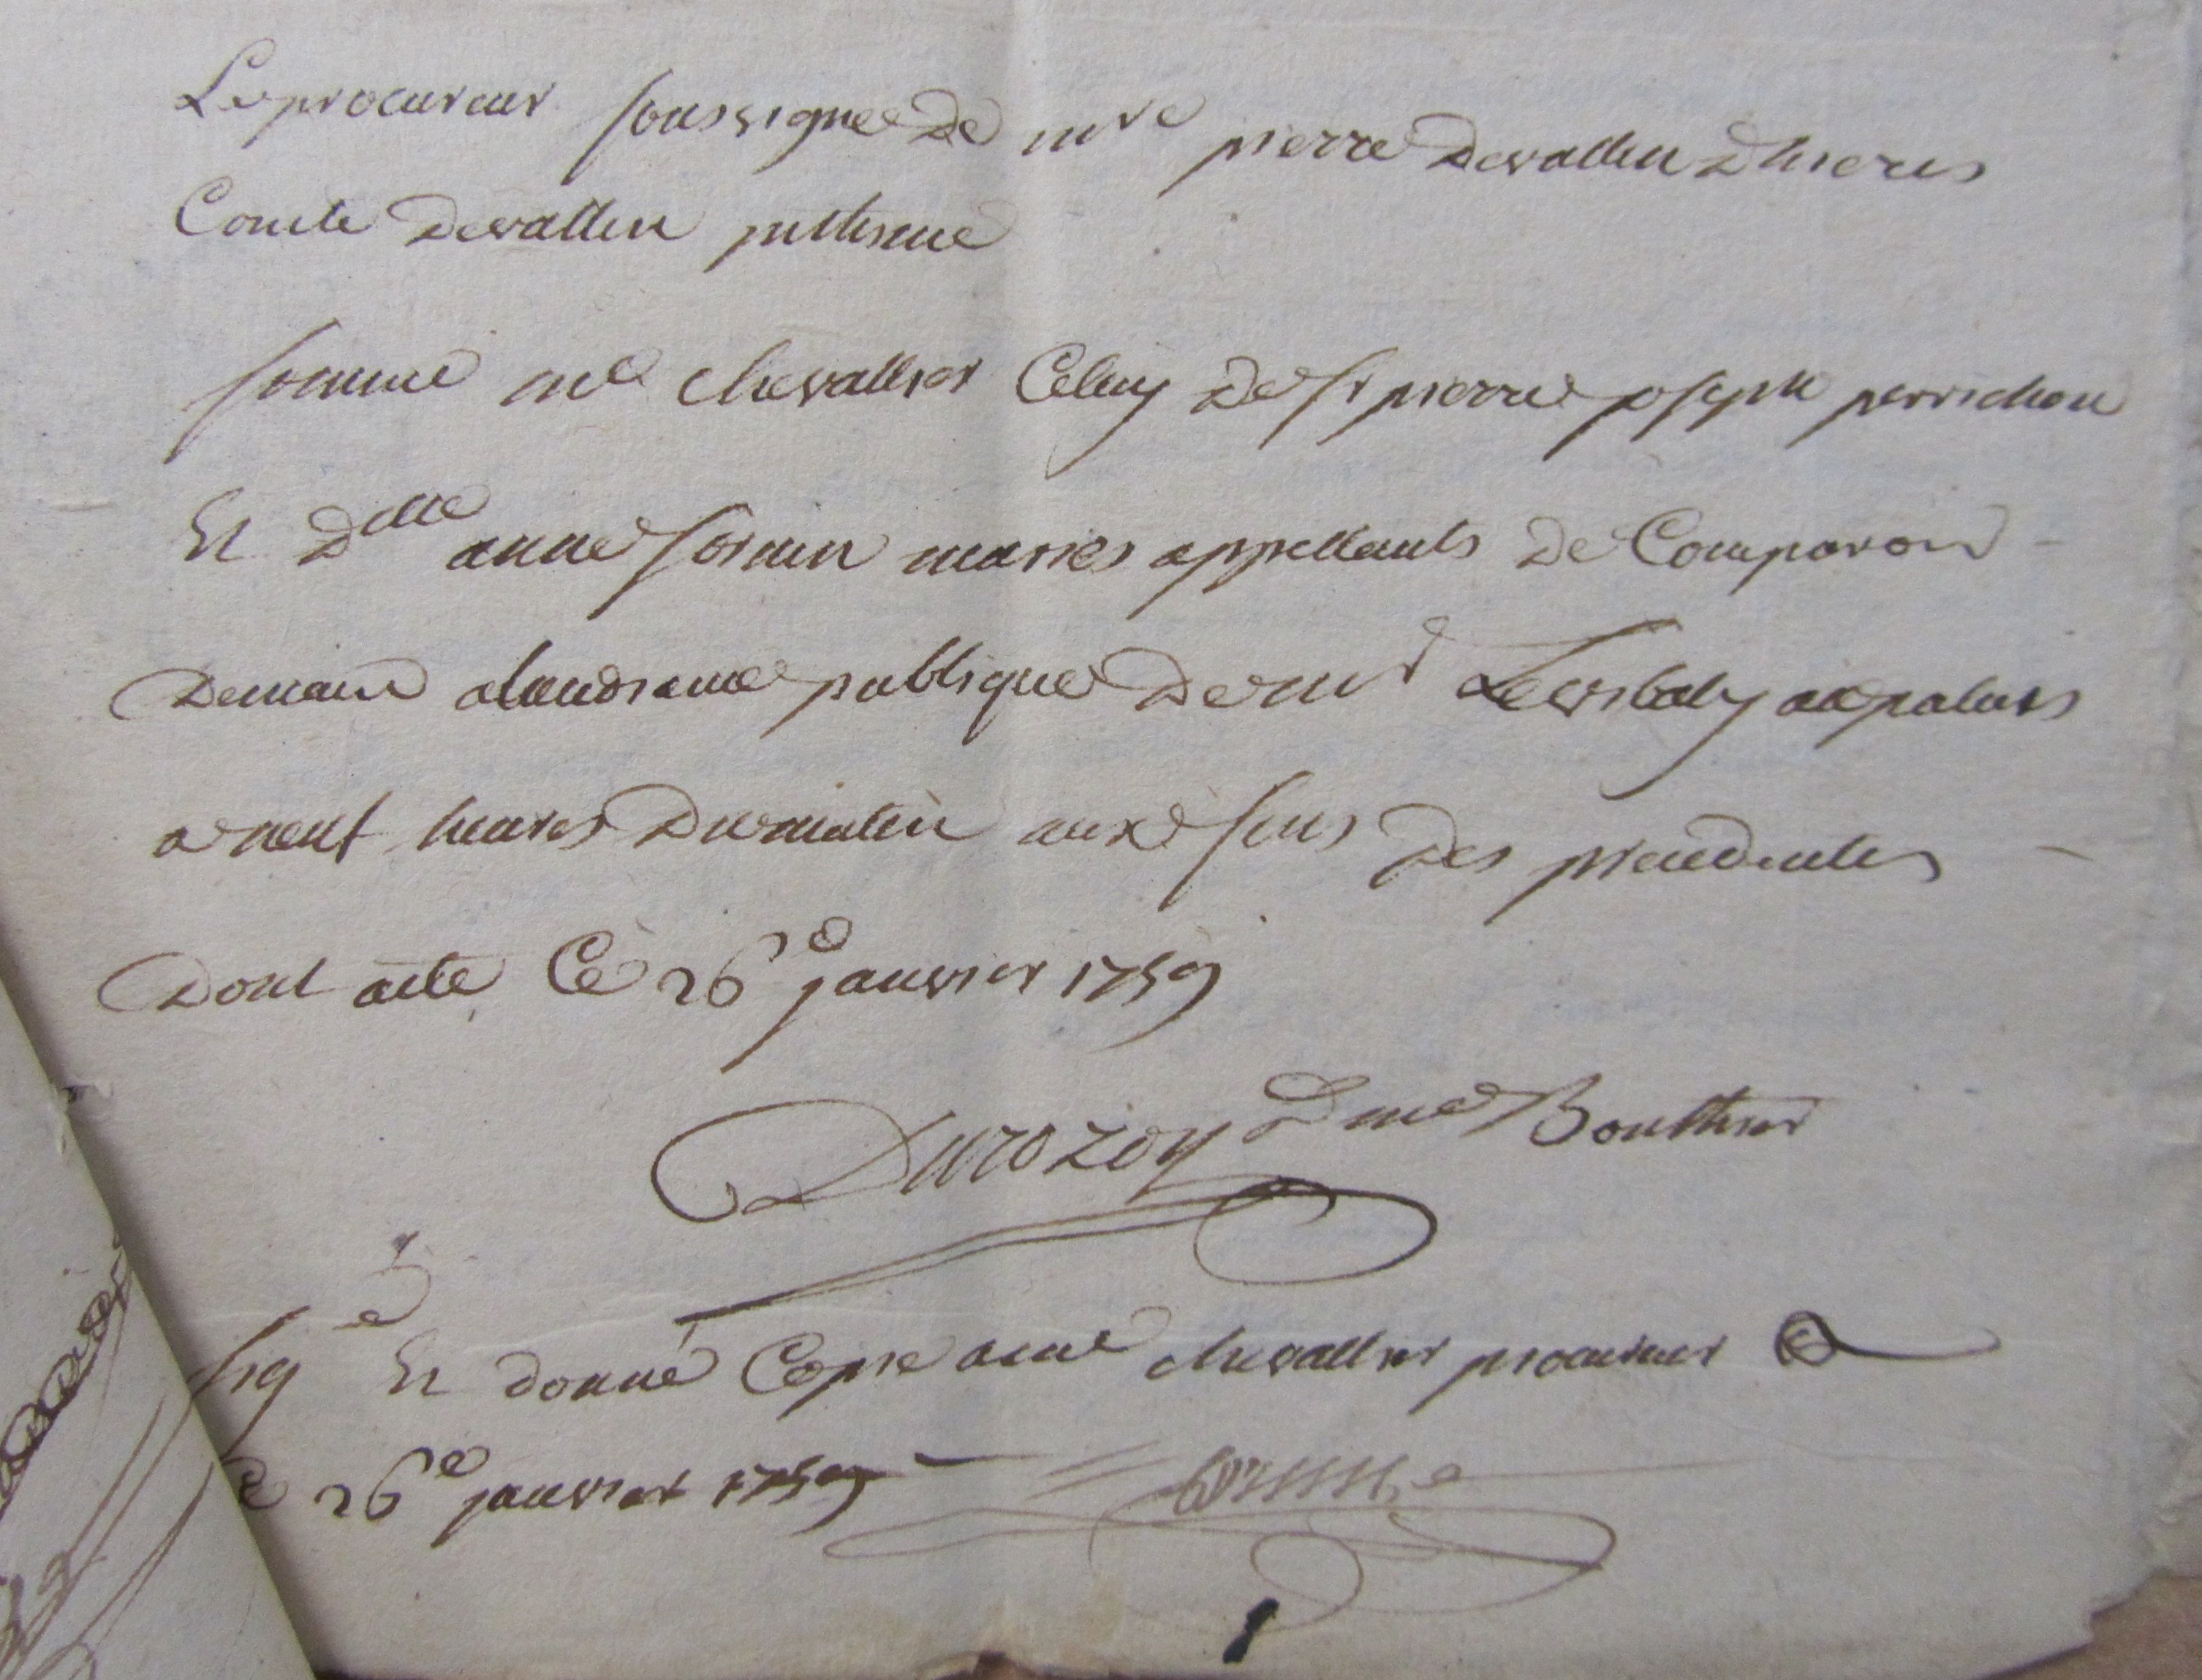 Le procureur soussigné de mre pierre devallin dhieres
Comte devallin jnthimé
somme me chevallier Celuy de sr pierre joseph perrichon
Et delle anne mariés appellants de Comparoir
Demain alaudiance publique de mr Levibaly au palais
a neuf heures du matin aux fins des precedentes
Dont acte Ce 26e janvier 1759
Durozoy pme Bouthier
sigé Et donné Copie a me chevallier procureur
Ce 26e janvier 1759